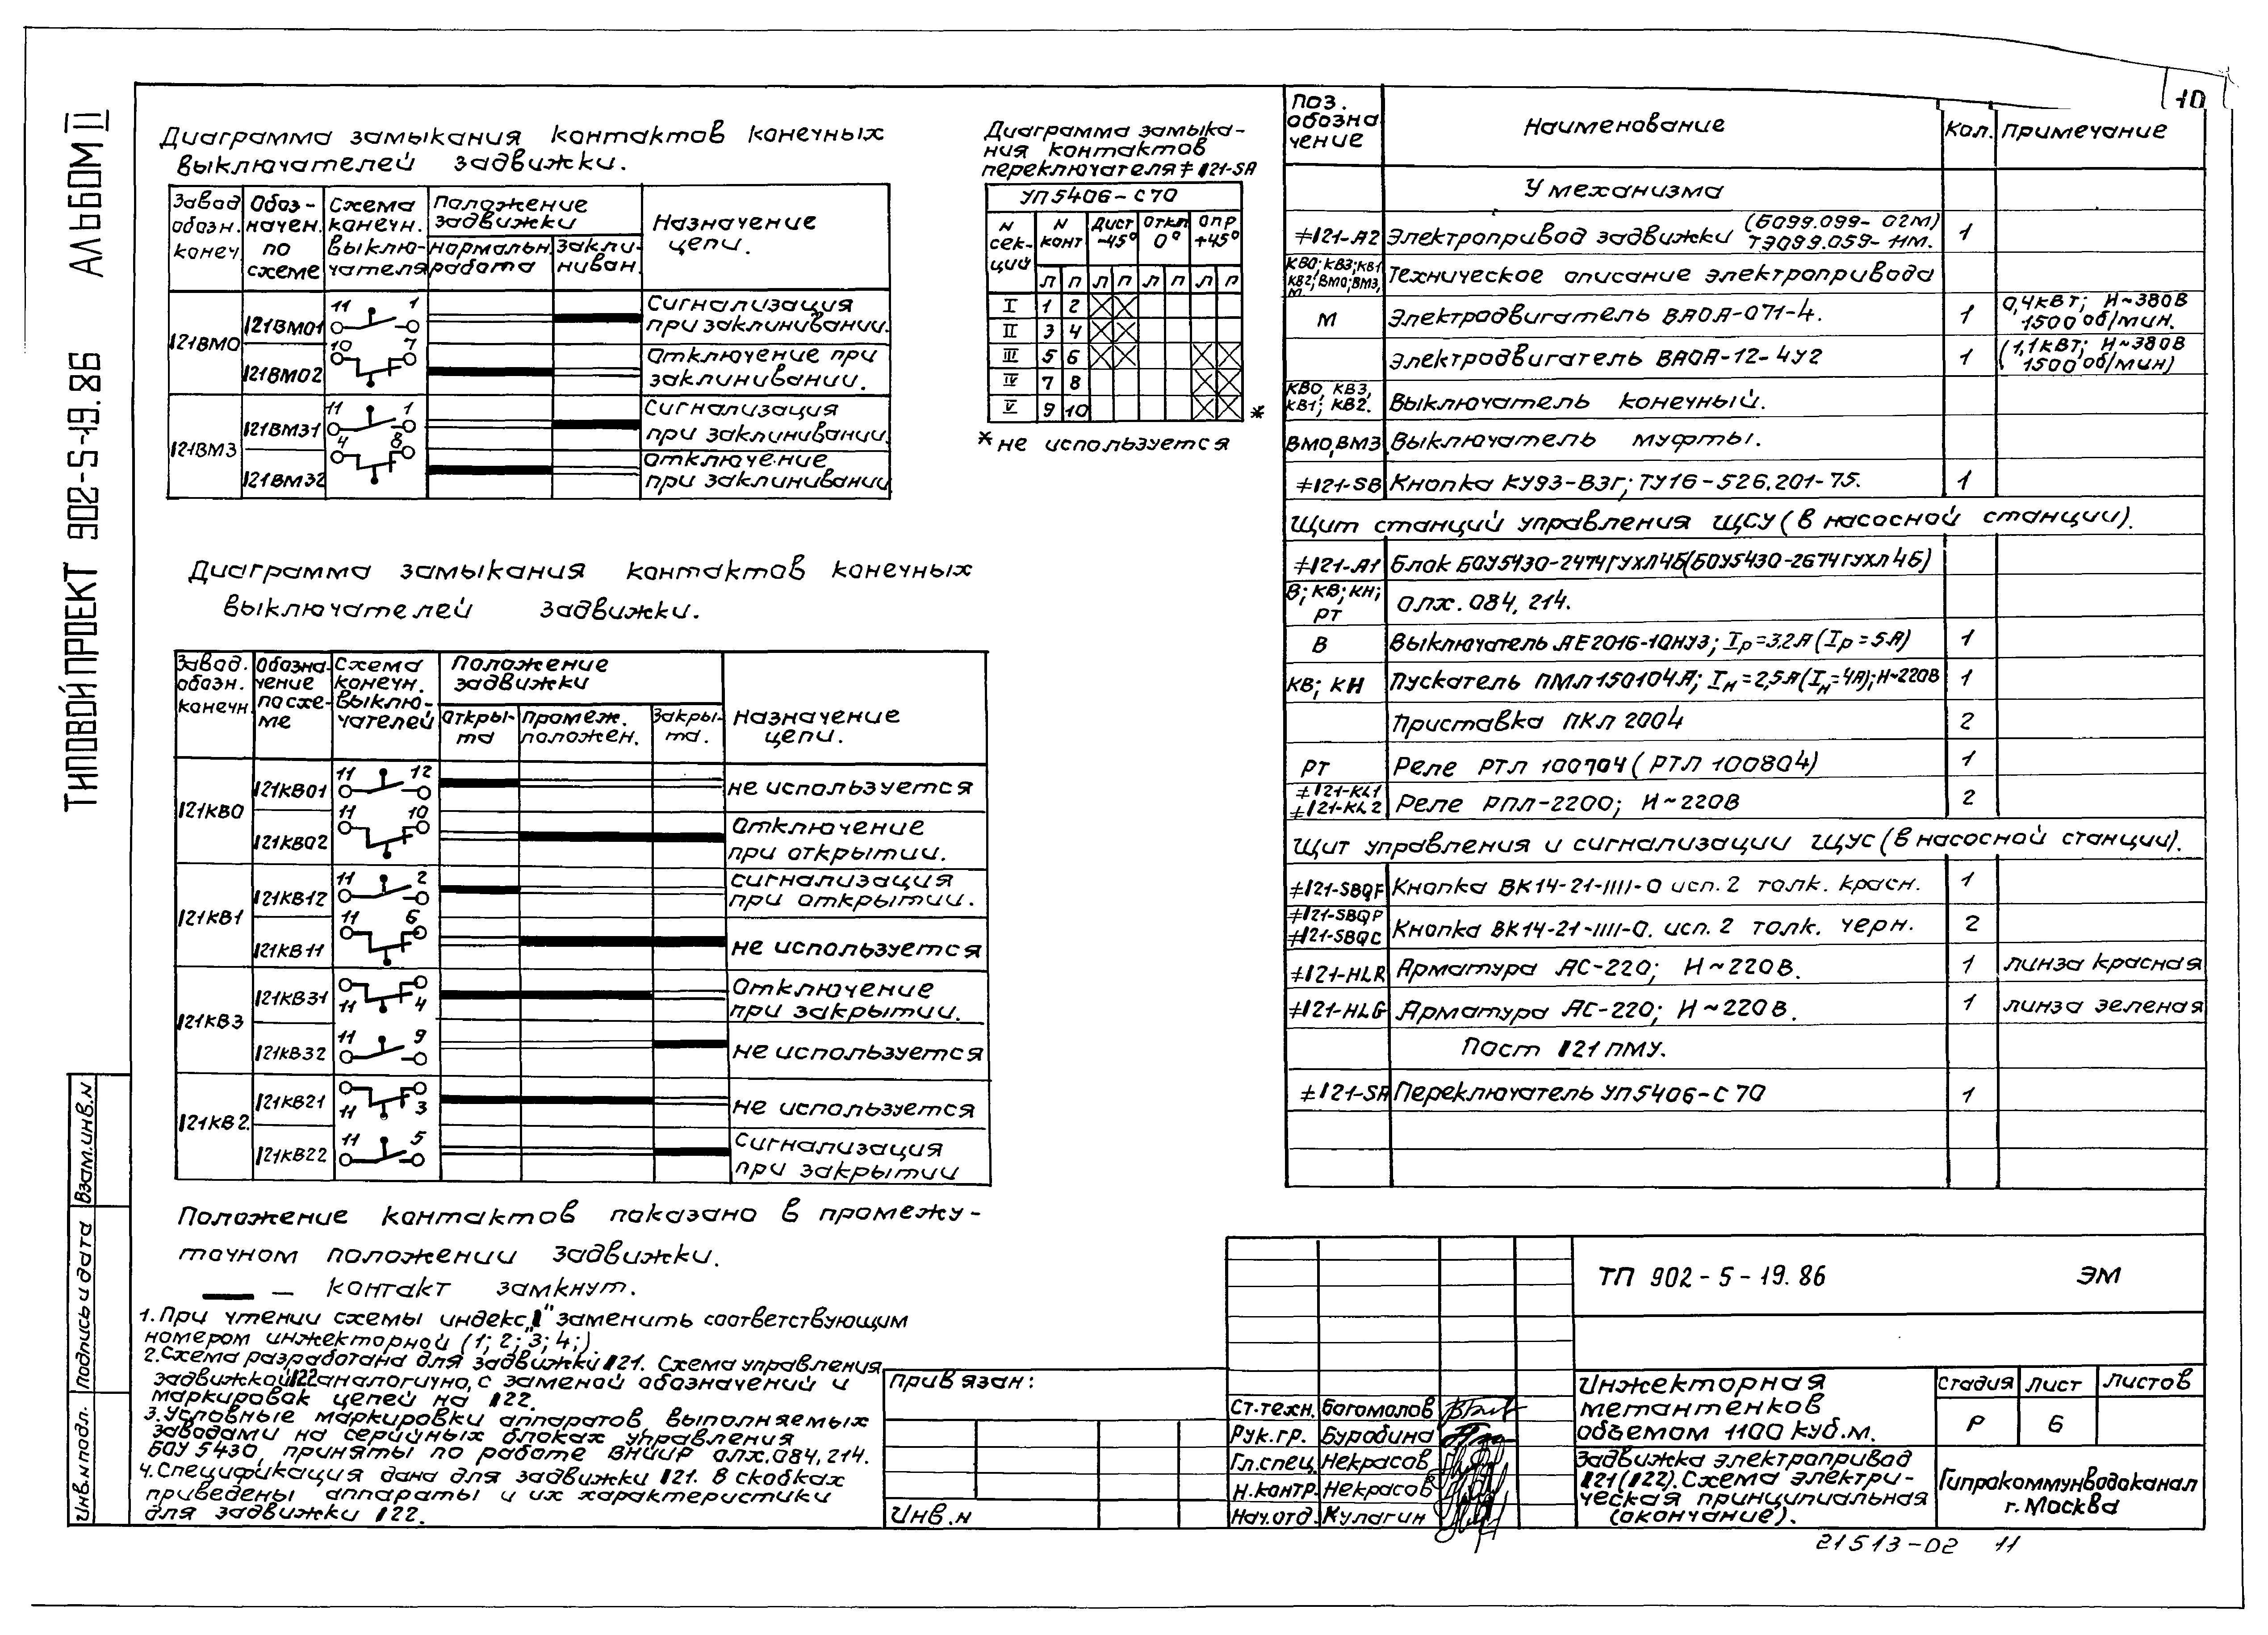 ТИПОВОЙ ПРОЕКТ 902-5-19.86 АЛЬБОМ II
10
Диаграмма замыкания контактов конечных
выключателей задвижки.
Завод. обозн. конеч.
Обоз-начен. по схеме
Схема конечн. выклю-чателя
Положение задвижки
нормальн. работа
закли-ниван.
Назначение цепи.
▮21ВМО
▮21ВМО1
11 1
Сигнализация
при заклинивании.
▮21ВМО2
10 7
Отключение при
заклинивании.
▮21ВМЗ
▮21ВМЗ1
11 1
Сигнализация
при заклинивании.
▮21ВМЗ2
4 8
Отключение
при заклинивании
Диаграмма замыка-
ния контактов
переключателя ≠▮21-SA
УП5406-С70
N сек-ций
N конт
Дист -45°
Откл 0°
Опр +45°
Л П Л П Л П Л П
I 1 2
II 3 4
III 5 6
IV 7 8
V 9 10 *
* не используется
Диаграмма замыкания контактов конечных
выключателей задвижки.
Завод. обозн. конечн.
Обозна-чение по схе-ме
Схема конечн. выклю-чателей
Положение задвижки
Откры-та
Промеж. положен.
Закры-та.
Назначение цепи.
▮21КВО
▮21КВО1
11 12
не используется
▮21КВО2
11 10
Отключение
при открытии.
▮21КВ1
▮21КВ12
11 2
сигнализация
при открытии.
▮21КВ11
11 6
не используется
▮21КВЗ
▮21КВЗ1
11 4
Отключение
при закрытии.
▮21КВЗ2
11 9
не используется
▮21КВ2
▮21КВ21
11 3
не используется
▮21КВ22
11 5
Сигнализация
при закрытии
Положение контактов показано в промежу-
точном положении задвижки.
— контакт замкнут.
1. При чтении схемы индекс „▮" заменить соответствующим
номером инжекторной (1; 2; 3; 4;).
2. Схема разработана для задвижки ▮21. Схема управления
задвижкой ▮22 аналогично, с заменой обозначений и
маркировок цепей на ▮22.
3. Условные маркировки аппаратов, выполняемых
заводами на серийных блоках управления
БОУ 5430, приняты по работе ВНИИР ОЛХ.084,214.
4. Спецификация дана для задвижки ▮21. В скобках
приведены аппараты и их характеристики
для задвижки ▮22.
Поз. обозна чение
Наименование
Кол.
Примечание
У механизма
≠▮21-А2 Электропривод задвижки (Б099.099-02М) ТЭ099.059-11М. 1
КВО; КВЗ; КВ1 КВ2; ВМО; ВМЗ, М. Техническое описание электропривода
М Электродвигатель ВАОА-071-4. 1 0,4кВт; И~380В 1500 об/мин.
Электродвигатель ВАОА-12-4У2 1 (1,1кВт; И~380В 1500 об/мин)
КВО, КВЗ, КВ1; КВ2. Выключатель конечный.
ВМО, ВМЗ Выключатель муфты.
≠▮21-SB Кнопка КУ93-ВЗГ; ТУ16-526.201-75. 1
Щит станций управления ЩСУ (в насосной станции).
≠▮21-А1 Блок БОУ5430-2474ГУХЛ4Б (БОУ5430-2674ГУХЛ4Б)
В; КВ; КН; РТ ОЛХ.084, 214.
В Выключатель АЕ2016-10НУЗ; Iр=3,2А (Iр=5А) 1
КВ; КН Пускатель ПМЛ150104А; Iн=2,5А (Iн=4А); И~220В 1
Приставка ПКЛ 2004 2
РТ Реле РТЛ 100704 (РТЛ 100804) 1
≠▮21-KL1 ≠▮21-KL2 Реле РПЛ-2200; И~220В 2
Щит управления и сигнализации ЩУС (в насосной станции).
≠▮21-SBQF Кнопка ВК14-21-1111-0 исп. 2 толк. красн. 1
≠▮21-SBQP ≠▮21-SBQC Кнопка ВК14-21-1111-0. исп. 2 толк. черн. 2
≠▮21-HLR Арматура АС-220; И~220В. 1 линза красная
≠▮21-HLG Арматура АС-220; И~220В. 1 линза зеленая
Пост ▮21 ПМУ.
≠▮21-SA Переключатель УП5406-С70 1
Взам.инв.N
Подпись и дата
Инв.N подл.
Привязан:
Инв.N
Ст.техн. Богомолов
Рук.гр. Бурдина
Гл.спец. Некрасов
Н.контр. Некрасов
Нач.отд. Кулагин
ТП 902-5-19.86 ЭМ
Инжекторная
метантенков
объемом 1100 куб.м.
Стадия Лист Листов
Р 6
Задвижка электропривод
▮21(▮22). Схема электри-
ческая принципиальная
(окончание).
Гипрокоммунводоканал
г. Москва
21513-02 11